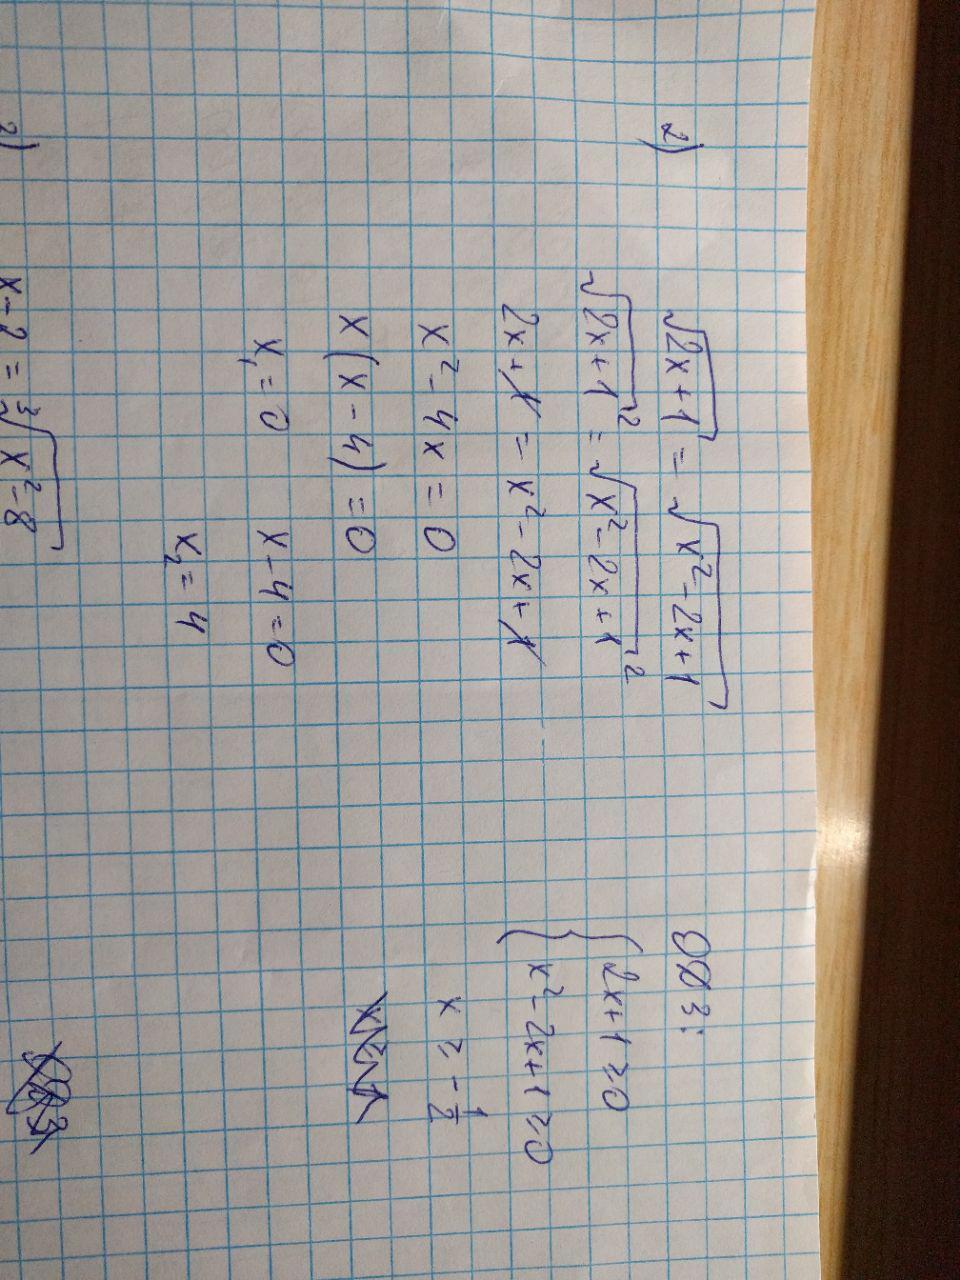 2) √2x+1 = √x²-2x+1
√2x+1² = √x²-2x+1²
2x+1 = x²-2x+1
x²-4x=0
x(x-4)=0
x₁=0 x-4=0
x₂=4
ОДЗ:
{ 2x+1≥0
x²-2x+1≥0
x ≥ -1/2
2) x-2=³√x²-8